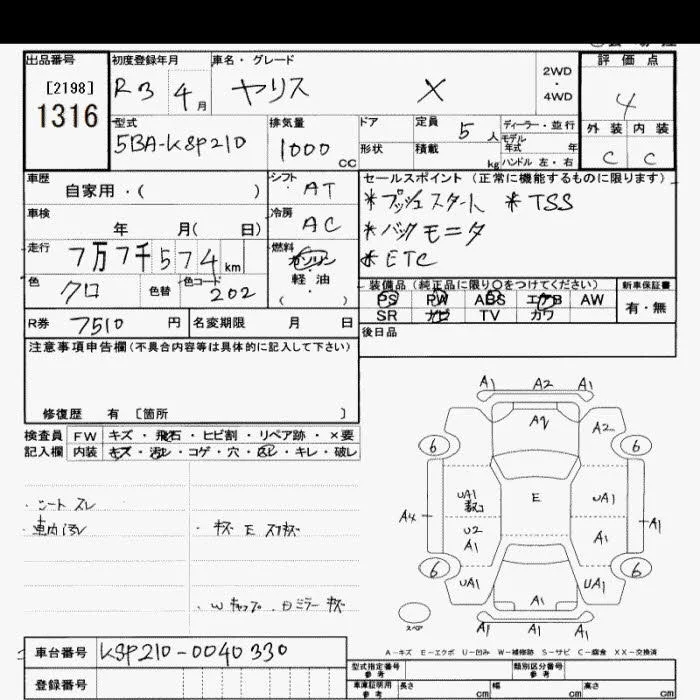 出品番号 初度登録年月 車名・グレード 評価点
[2198] R3 4月 ヤリス X 2WD・4WD 4
1316
型式 排気量 ドア 定員 5人 ディーラー・並行 外装 内装
5BA-KSP210 1000CC 形状 積載 kg モデル年式 年 C C
ハンドル 左・右
車歴 シフト セールスポイント (正常に機能するものに限ります)
自家用・( ) AT *プッシュスタート *TSS
車検 冷房 *バックモニタ
年 月( 日) AC *ETC
走行 燃料
7万7千574km ガソリン
色 色替 色コード 軽・油 装備品(純正品に限り○をつけてください) 新車保証書
クロ 202 ( ) PS PW ABS エアB AW 有・無
R券 7510円 名変期限 月 日 SR ナビ TV カワ
注意事項申告欄(不具合内容等は具体的に記入して下さい) 後日品
修復歴 有 [箇所 ]
検査員 FW キズ・飛石・ヒビ割・リペア跡・×要
記入欄 内装 キズ・汚レ・コゲ・穴・ ・キレ・破レ
・シート スレ
・車内 汚レ ・キズ E スリキズ
・Wキャップ ・Dミラー キズ
A1 A2 A1
A2 A2
6 6
UA1 E UA1
A4 U2 A1
A1 A1
6 6
UA1 UA1
A1
スペア A1 A1 A1
A-キズ E-エクボ U-凹み W-補修跡 S-サビ C-腐食 XX-交換済
車台番号 KSP210-0040330
登録番号
型式指定番号 参考 類別区分番号 参考
車庫証明用 参考 長さ cm 幅 cm 高さ cm